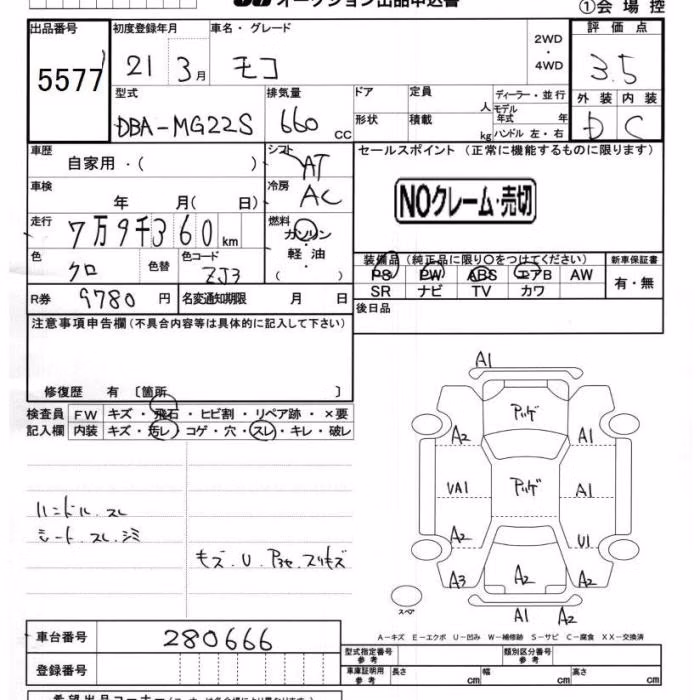 オークション出品申込書 ①会場控
出品番号 初度登録年月 車名・グレード 2WD・4WD 評価点
5577 21 3月 モコ 3.5
型式 排気量 ドア 定員 人 ディーラー・並行 外装 内装
DBA-MG22S 660 CC 形状 積載 kg モデル年式 年 ハンドル 左・右 D C
車歴 自家用・( ) シフト AT セールスポイント (正常に機能するものに限ります)
車検 年 月( 日) 冷房 AC NOクレーム・売切
走行 7万9千360km 燃料 ガソリン・軽油・( )
色 クロ 色替 色コード ZJ3
装備品 (純正品に限り○をつけてください) 新車保証書
PS PW ABS エアB AW 有・無
SR ナビ TV カワ
R券 9780円 名変通知期限 月 日 後日品
注意事項申告欄(不具合内容等は具体的に記入して下さい)
修復歴 有 〔箇所 〕
検査員 FW キズ・飛石・ヒビ割・リペア跡・×要
記入欄 内装 キズ・汚レ・コゲ・穴・スレ・キレ・破レ
ハンドル スレ
シート スレ シミ
キズ・U
A1
アゲ
A2 A1
VA1 アゲ A1
A2 U1
A3 A2 A2
スペア A1 A2
A-キズ E-エクボ U-凹み W-補修跡 S-サビ C-腐食 XX-交換済
車台番号 280666
型式指定番号 参考 類別区分番号 参考
登録番号 車庫証明用 参考 長さ cm 幅 cm 高さ cm
希望出品コーナー